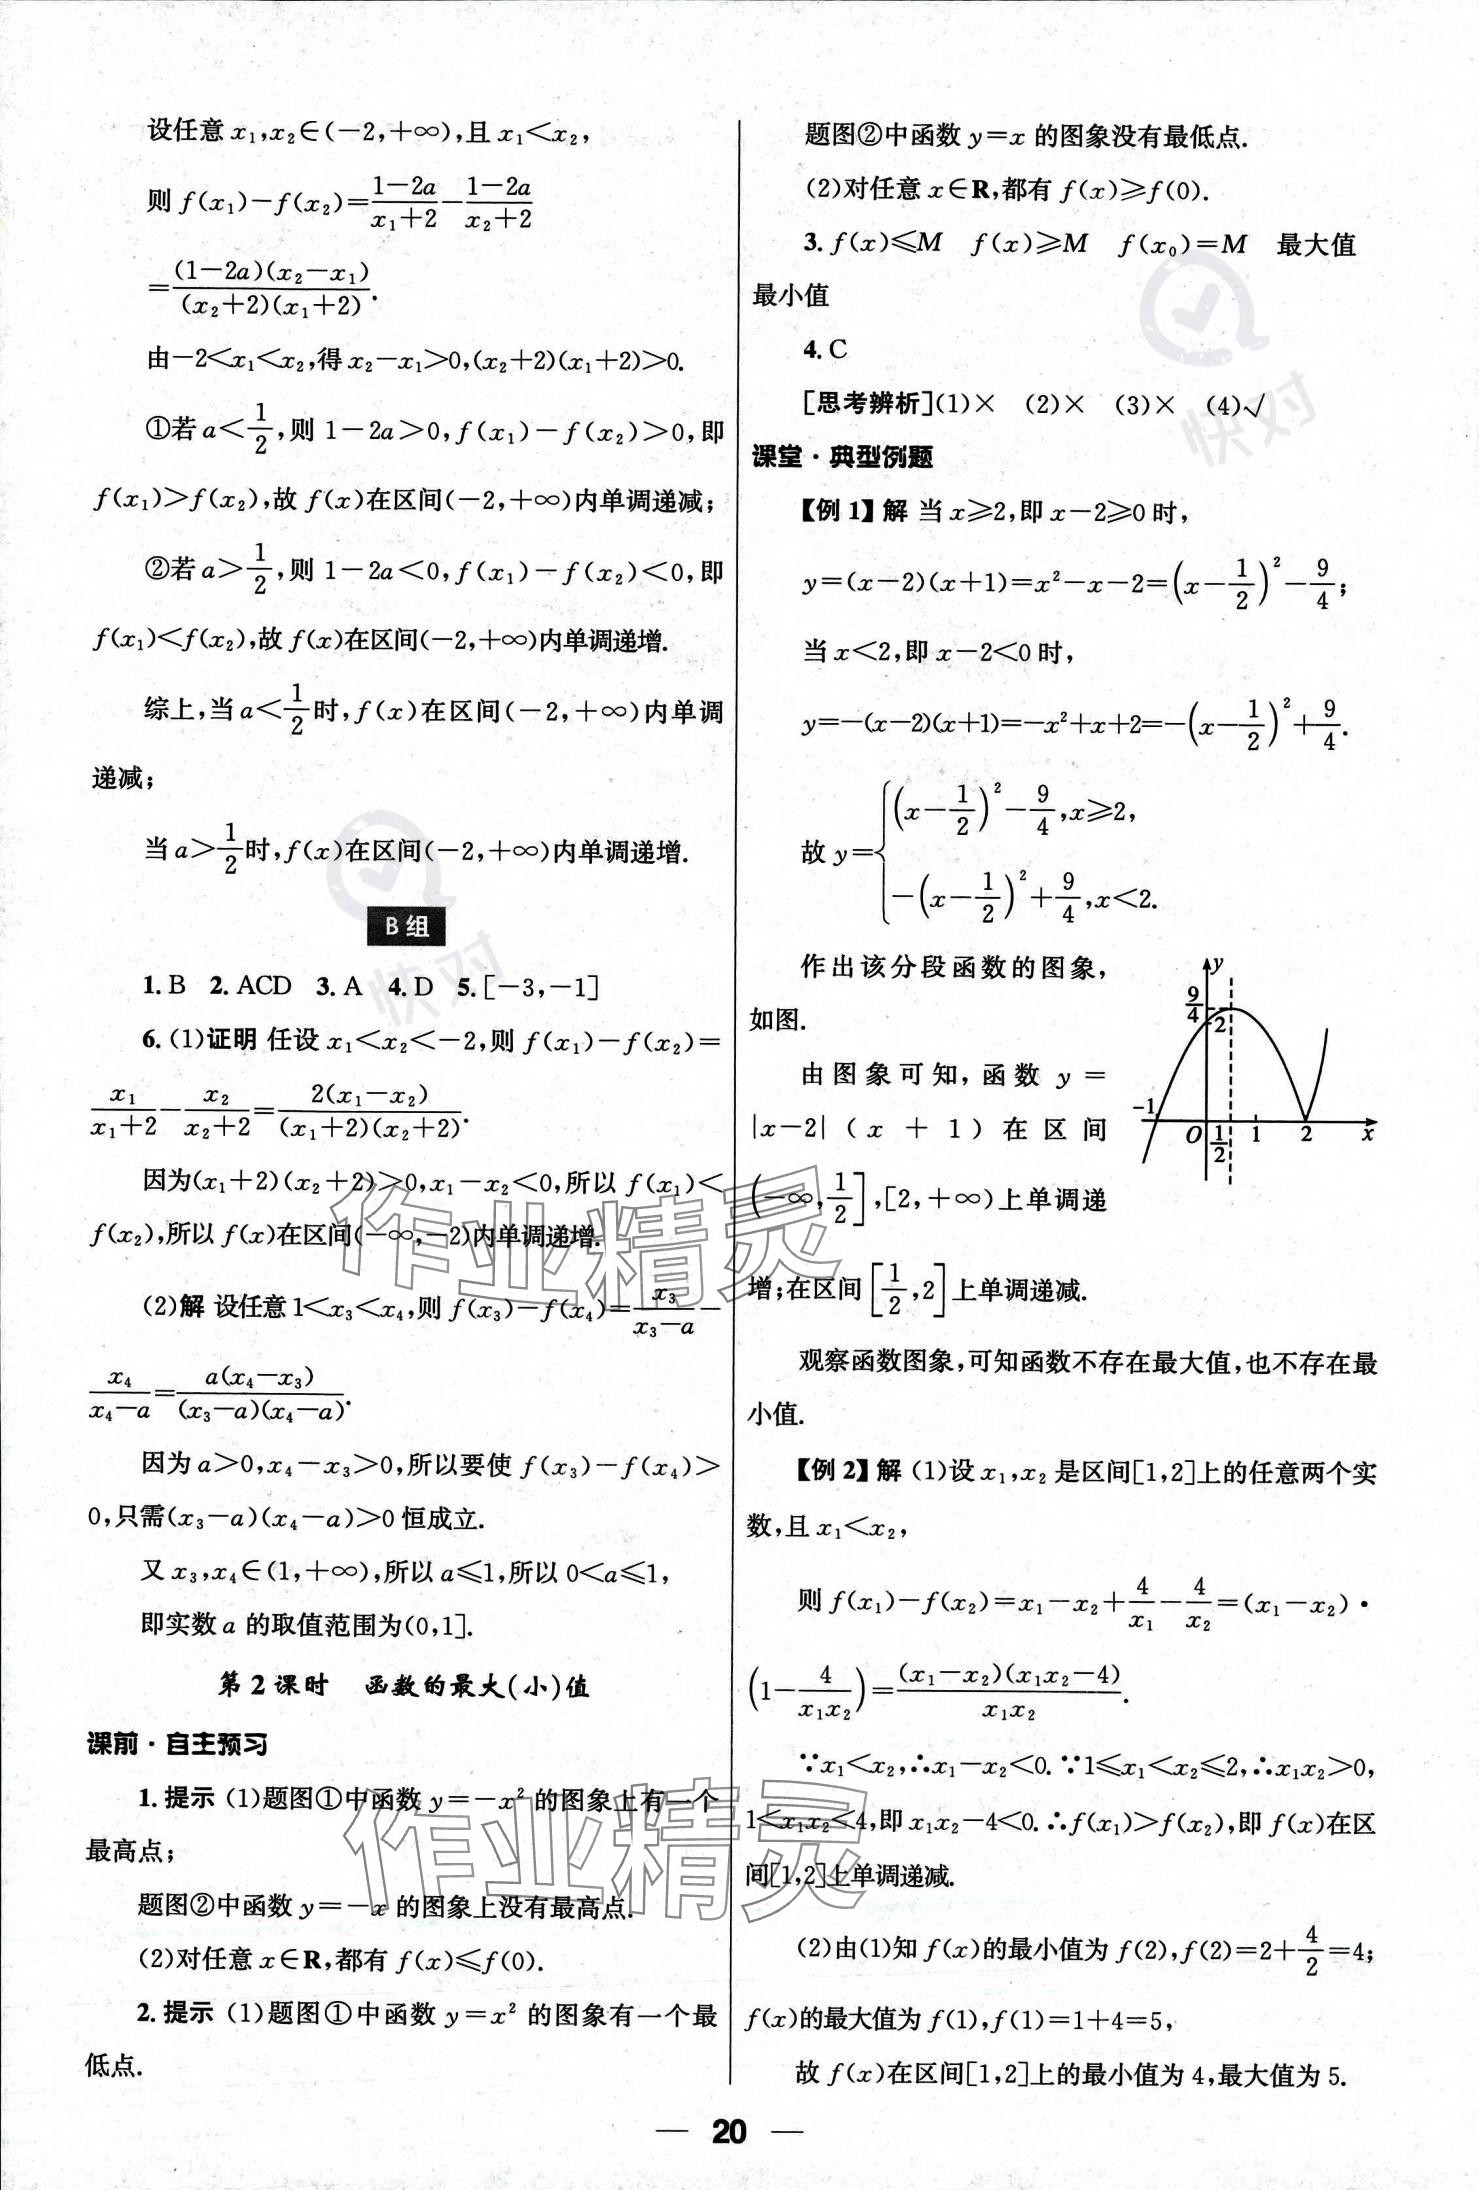 设任意 x₁,x₂∈(−2,+∞),且 x₁<x₂,
则 f(x₁)−f(x₂)=\frac{1−2a}{x₁+2}−\frac{1−2a}{x₂+2}
=\frac{(1−2a)(x₂−x₁)}{(x₂+2)(x₁+2)}.
由−2<x₁<x₂,得 x₂−x₁>0,(x₂+2)(x₁+2)>0.
①若 a<\frac{1}{2},则 1−2a>0,f(x₁)−f(x₂)>0,即
f(x₁)>f(x₂),故 f(x)在区间(−2,+∞)内单调递减;
②若 a>\frac{1}{2},则 1−2a<0,f(x₁)−f(x₂)<0,即
f(x₁)<f(x₂),故 f(x)在区间(−2,+∞)内单调递增.
综上,当 a<\frac{1}{2}时,f(x)在区间(−2,+∞)内单调
递减;
当 a>\frac{1}{2}时,f(x)在区间(−2,+∞)内单调递增.
B 组
1. B 2. ACD 3. A 4. D 5. [−3,−1]
6. (1)证明 任设 x₁<x₂<−2,则 f(x₁)−f(x₂)=
\frac{x₁}{x₁+2}−\frac{x₂}{x₂+2}=\frac{2(x₁−x₂)}{(x₁+2)(x₂+2)}.
因为(x₁+2)(x₂+2)>0,x₁−x₂<0,所以 f(x₁)<
f(x₂),所以 f(x)在区间(−∞,−2)内单调递增.
(2)解 设任意 1<x₃<x₄,则 f(x₃)−f(x₄)=\frac{x₃}{x₃−a}−
\frac{x₄}{x₄−a}=\frac{a(x₄−x₃)}{(x₃−a)(x₄−a)}.
因为 a>0,x₄−x₃>0,所以要使 f(x₃)−f(x₄)>
0,只需(x₃−a)(x₄−a)>0 恒成立.
又 x₃,x₄∈(1,+∞),所以 a≤1,所以 0<a≤1,
即实数 a 的取值范围为(0,1].
第 2 课时 函数的最大(小)值
课前·自主预习
1. 提示 (1)题图①中函数 y=−x² 的图象上有一个
最高点;
题图②中函数 y=−x 的图象上没有最高点.
(2)对任意 x∈R,都有 f(x)≤f(0).
2. 提示 (1)题图①中函数 y=x² 的图象有一个最
低点.
题图②中函数 y=x 的图象没有最低点.
(2)对任意 x∈R,都有 f(x)≥f(0).
3. f(x)≤M f(x)≥M f(x₀)=M 最大值
最小值
4. C
[思考辨析](1)× (2)× (3)× (4)√
课堂·典型例题
【例 1】解 当 x≥2,即 x−2≥0 时,
y=(x−2)(x+1)=x²−x−2=(x−\frac{1}{2})²−\frac{9}{4};
当 x<2,即 x−2<0 时,
y=−(x−2)(x+1)=−x²+x+2=−(x−\frac{1}{2})²+\frac{9}{4}.
故 y={(x−\frac{1}{2})²−\frac{9}{4},x≥2,
−(x−\frac{1}{2})²+\frac{9}{4},x<2.
作出该分段函数的图象,
如图.
由图象可知,函数 y=
|x−2|(x+1)在区间
(−∞,\frac{1}{2}],[2,+∞)上单调递
y
\frac{9}{4}
2
−1
O
\frac{1}{2}
1
2
x
增;在区间[\frac{1}{2},2]上单调递减.
观察函数图象,可知函数不存在最大值,也不存在最
小值.
【例 2】解 (1)设 x₁,x₂ 是区间[1,2]上的任意两个实
数,且 x₁<x₂,
则 f(x₁)−f(x₂)=x₁−x₂+\frac{4}{x₁}−\frac{4}{x₂}=(x₁−x₂)·
(1−\frac{4}{x₁x₂})=\frac{(x₁−x₂)(x₁x₂−4)}{x₁x₂}.
∵x₁<x₂,∴x₁−x₂<0.∵1≤x₁<x₂≤2,∴x₁x₂>0,
1<x₁x₂<4,即 x₁x₂−4<0.∴f(x₁)>f(x₂),即 f(x)在区
间[1,2]上单调递减.
(2)由(1)知 f(x)的最小值为 f(2),f(2)=2+\frac{4}{2}=4;
f(x)的最大值为 f(1),f(1)=1+4=5,
故 f(x)在区间[1,2]上的最小值为 4,最大值为 5.
— 20 —
快对
快对
作业精灵
作业精灵